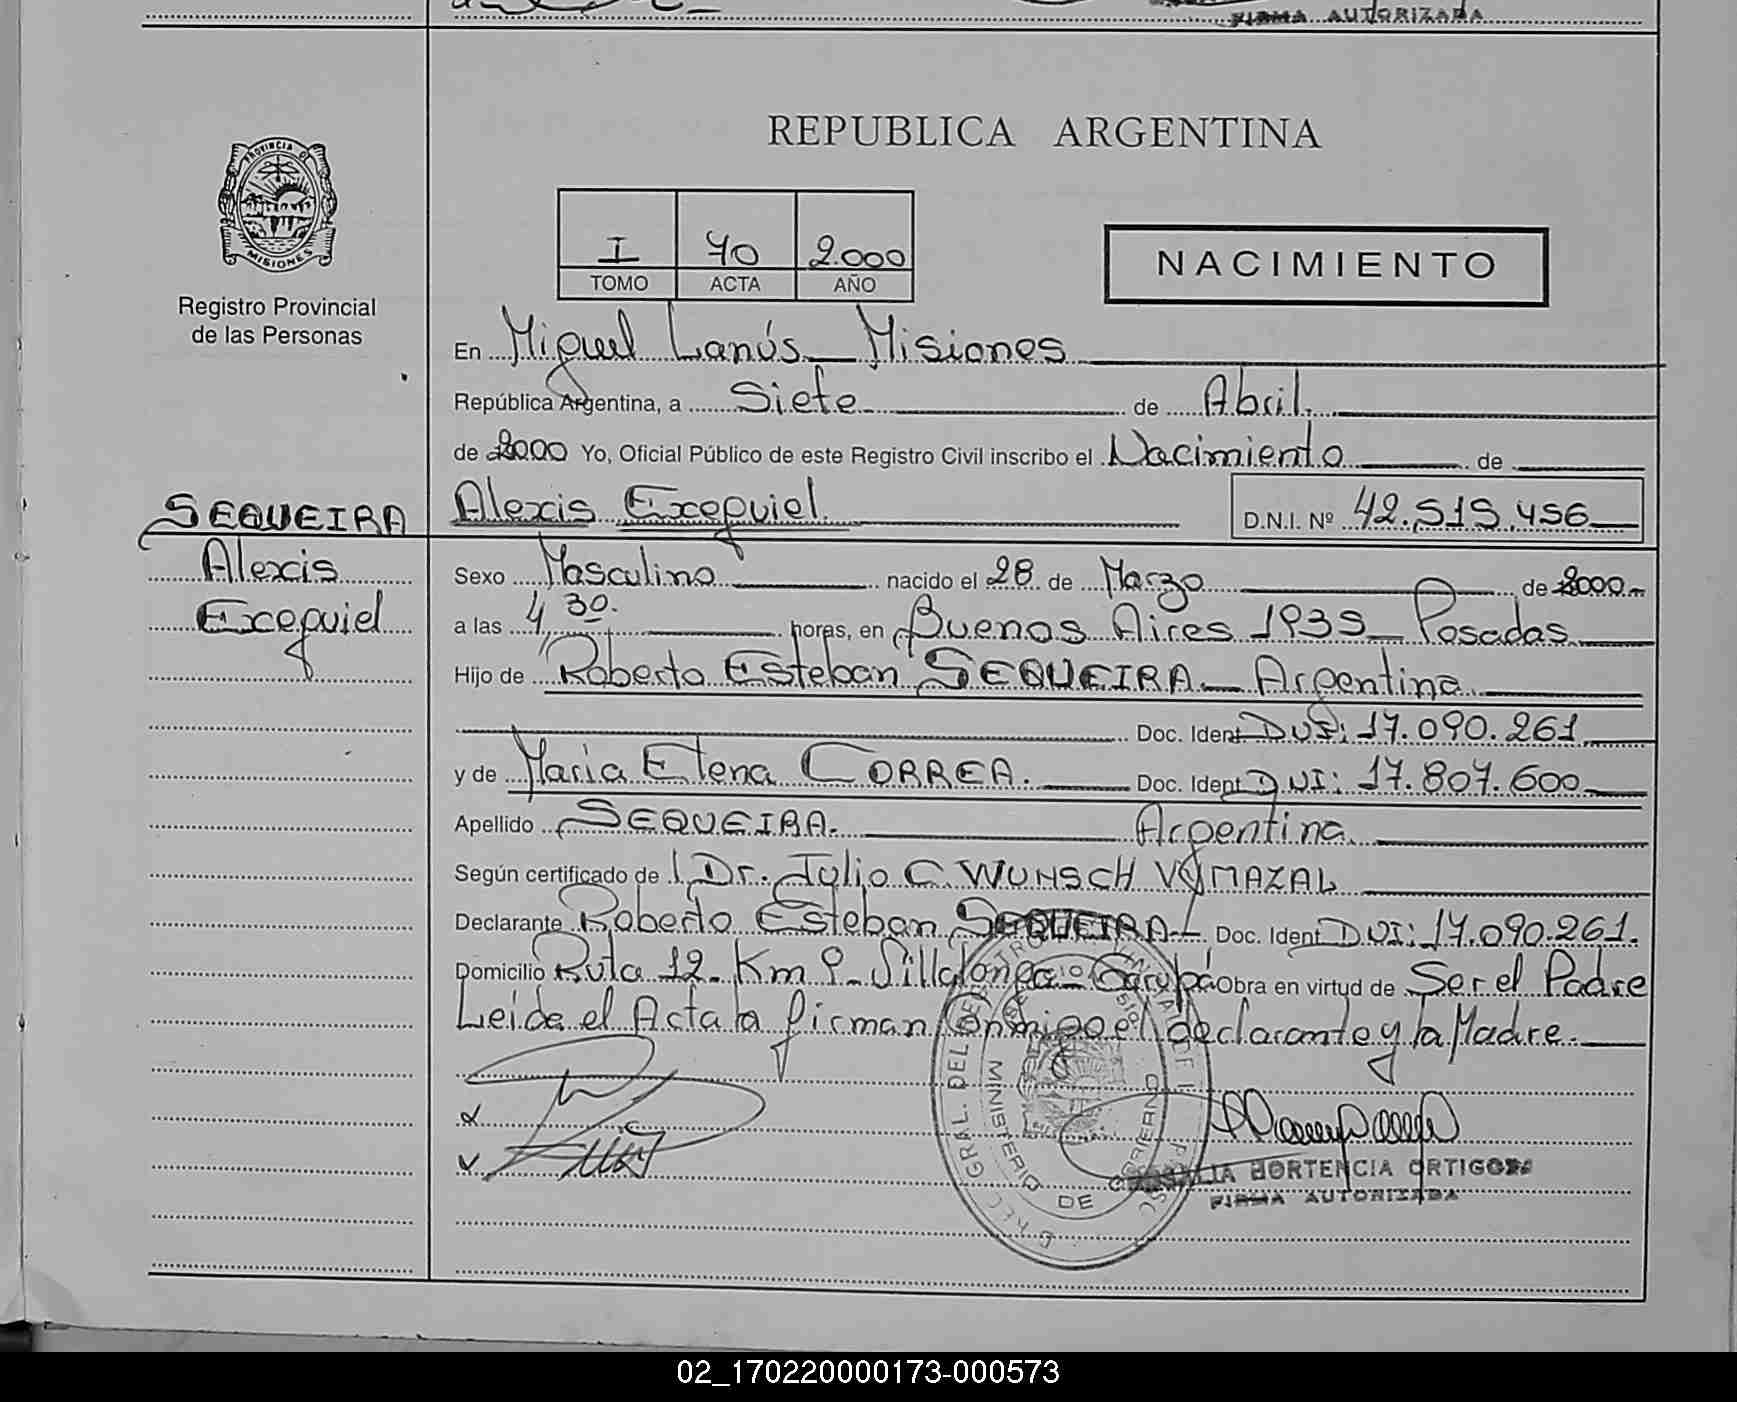 FIRMA AUTORIZADA
REPUBLICA ARGENTINA
PROVINCIA DE
MISIONES
Registro Provincial
de las Personas
I 70 2.000
TOMO ACTA AÑO
NACIMIENTO
En Miguel Lanús - Misiones
República Argentina, a Siete de Abril
de 2000 Yo, Oficial Público de este Registro Civil inscribo el Nacimiento de
SEQUEIRA
Alexis
Excequiel
Alexis Excequiel D.N.I. Nº 42.515.456
Sexo Masculino nacido el 28 de Marzo de 2000
a las 4,30 horas, en Buenos Aires 1939 - Posadas
Hijo de Roberto Esteban SEQUEIRA - Argentina
Doc. Ident DNI: 17.090.261
y de Maria Elena CORREA. Doc. Ident DNI: 17.807.600
Apellido SEQUEIRA. Argentina
Según certificado de Dr. Julio C. WUNSCH VYMAZAL
Declarante Roberto Esteban SEQUEIRA Doc. Ident DNI: 17.090.261.
Domicilio Ruta 12 - Km 9 - Villalonga - Garupá Obra en virtud de Ser el Padre
Leida el Acta la firman Conmigo el declarante y la Madre.
MINISTERIO DE GOBIERNO
HORTENCIA ORTIGOZA
FIRMA AUTORIZADA
02_170220000173-000573